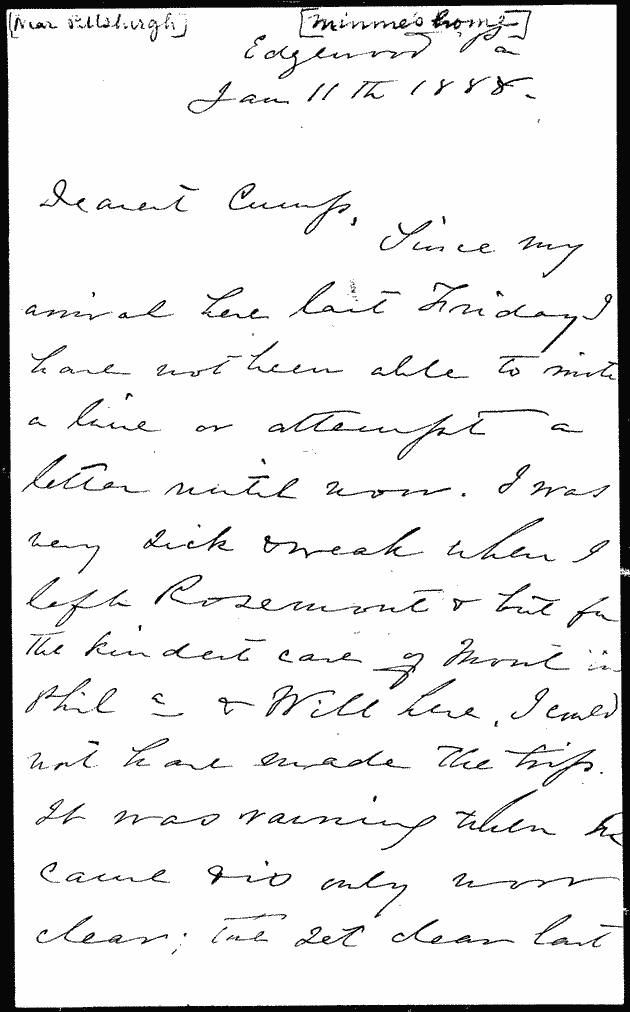 [Near Pittsburgh] [Minnie's home]
Edgewood Pa
Jan 11th 1888.
Dearest Cump,
Since my
arrival here last Friday I
have not been able to write
a line or attempt a
letter until now. I was
very sick & weak when I
left Rosemont & but for
the kindest care of Mont in
Phila & Will here, I could
not have made the trip.
It was raining when we
came & is only now
clear; the set clear last